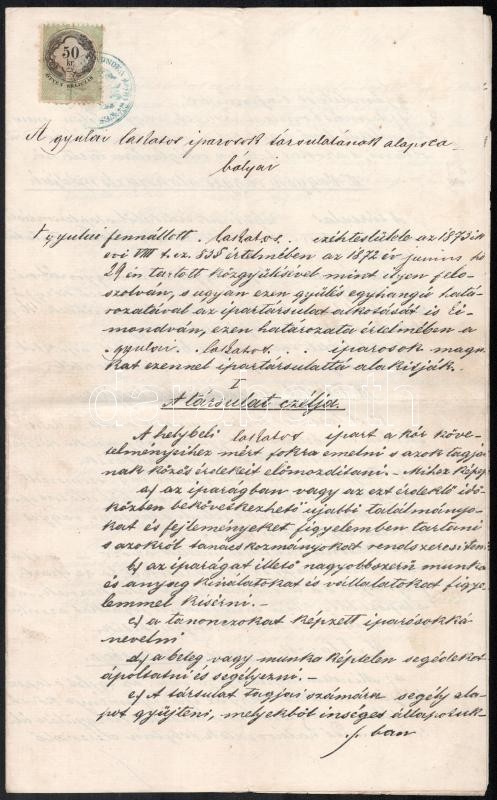 50
kr.
ÖTVEN KRAJCZÁR
A gyulai lakatos iparosok társulatának alapsza-
bályai
A gyulai fennállott lakatos czéhtestülete az 1873 ik
évi VIII t. cz. 535 értelmében az 1872 év junius hó
29 én tartott közgyülésével mint ilyen felo-
szolván, s ugyan ezen gyülés egyhangú hatá-
rozatával az ipartársulat alkotását is ki-
mondván, ezen határozata értelmében a
gyulai lakatos iparosok magu-
kat ezennel ipartársulattá alakitják.
I
A társulat czélja.
A helybeli lakatos ipart a kor köve-
telményeihez mért fokra emelni s azok tagja-
inak közös érdekeit elömozditani. – Mihez képest
a) az iparágban vagy az ezt érdeklö idö-
közben bekövetkezhetö ujabbi találmányo-
kat és fejleményeket figyelemben tartani
s azokról tanácskozmányokat rendszeresiteni
b) az iparágat illetö nagyobbszerü munka
és anyag kinálatokat és vállalatokat figye-
lemmel kisérni. –
c) a tanonczokat képzett iparosokká
nevelni
d) a beteg vagy munka képtelen segédeket
ápoltatni és segélyezni. –
e) A társulat tagjai számára segély ala-
pot gyüjteni, melyekböl inséges állapotuk-
ban